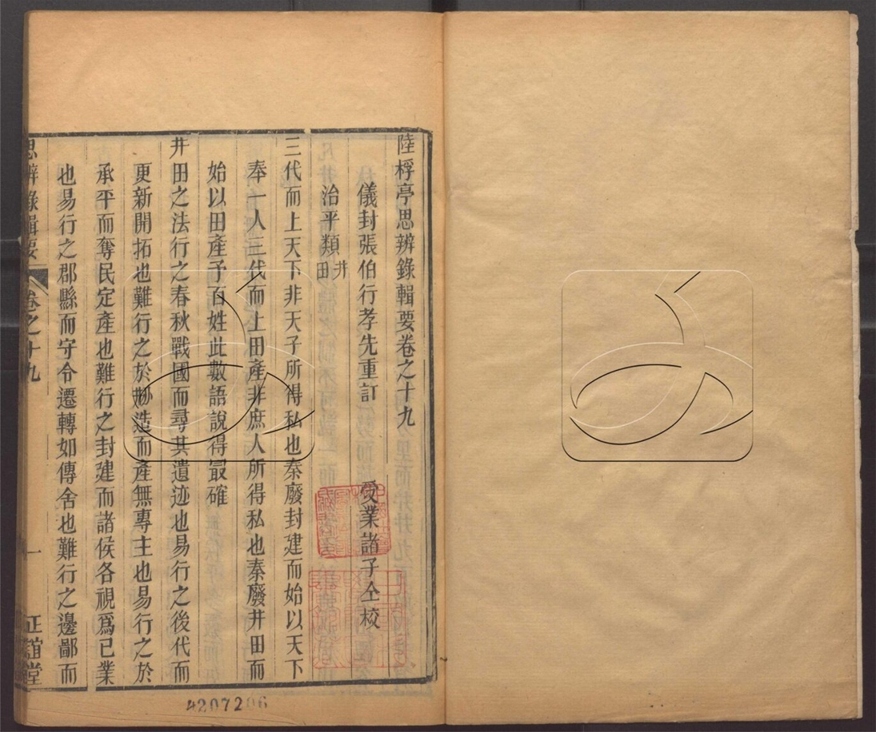 陸桴亭思辨錄輯要卷之十九
儀封張伯行孝先重訂 受業諸子仝校
治平類 井田
三代而上天下非天子所得私也秦廢封建而始以天下
奉一人三代而上田產非庶人所得私也秦廢井田而
始以田產予百姓此數語說得最確
井田之法行之春秋戰國而尋其遺迹也易行之後代而
更新開拓也難行之於刱造而產無專主也易行之於
承平而奪民定產也難行之封建而諸侯各視爲已業
也易行之郡縣而守令遷轉如傳舍也難行之邊鄙而
思辨錄輯要 卷之十九 一 正誼堂
4207206